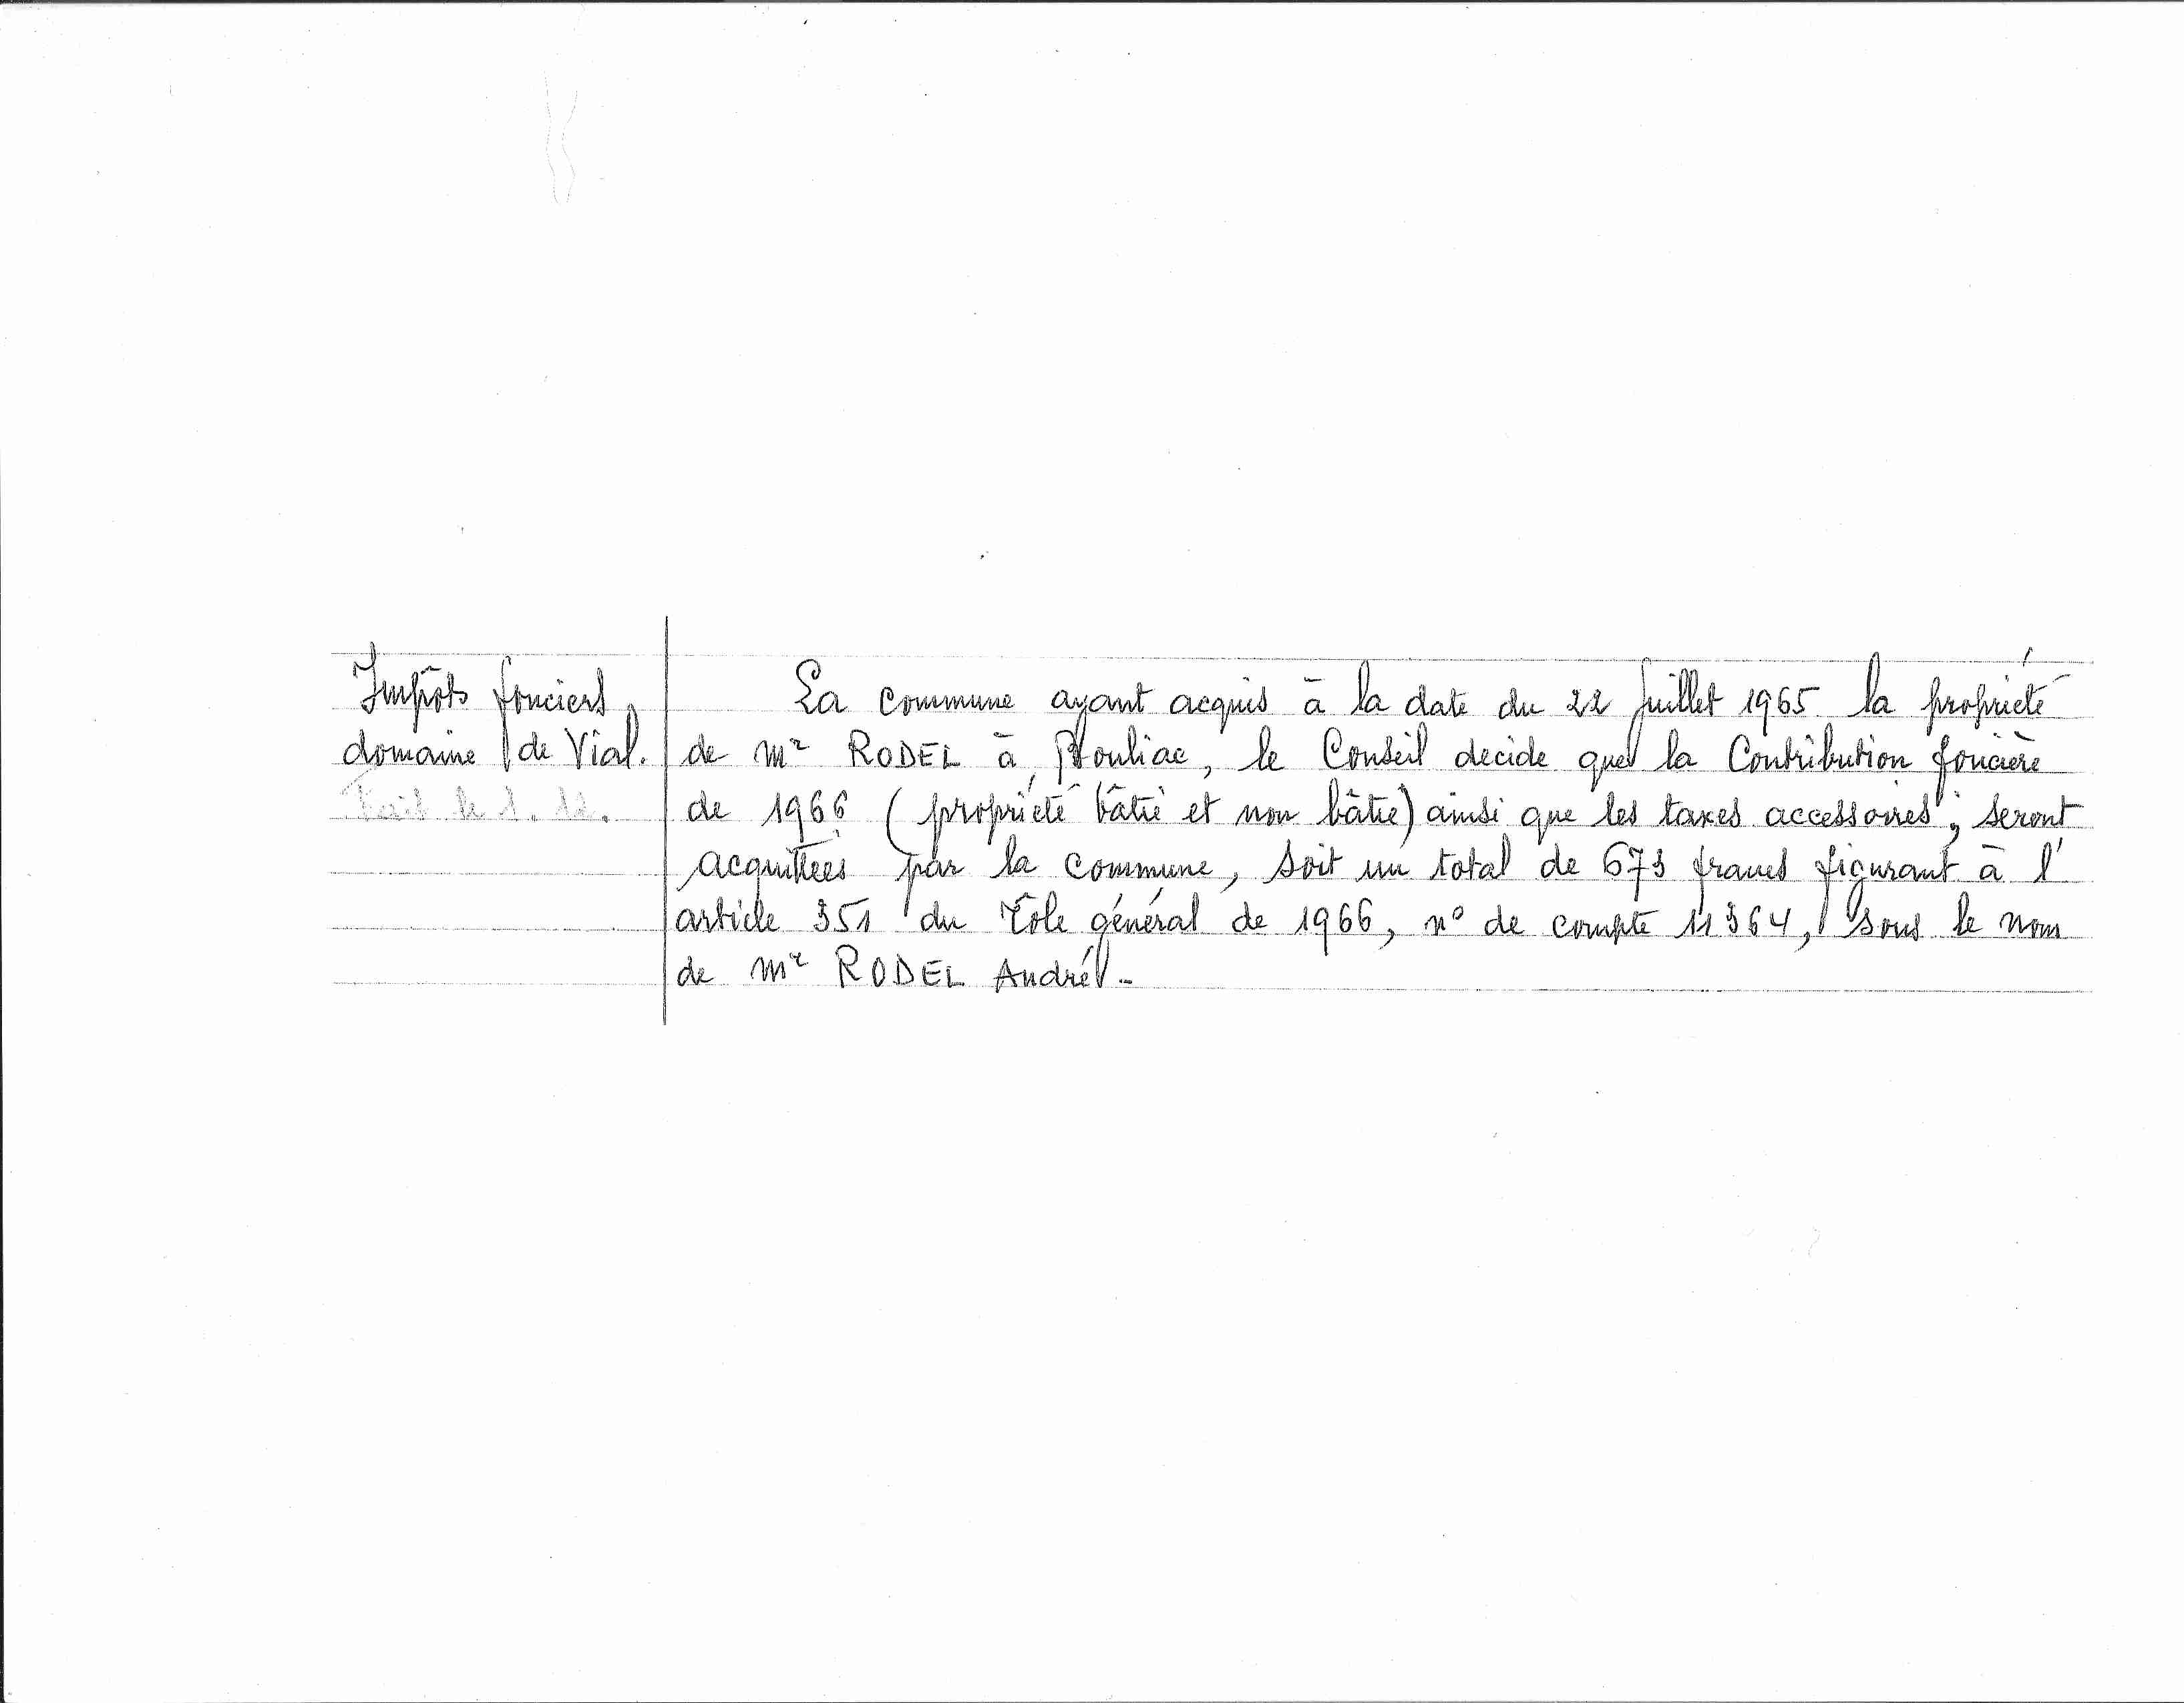 Impôts fonciers,
domaine de Vial.
Fait le 1.12.
La commune ayant acquis à la date du 22 Juillet 1965 la propriété
de Mr RODEL à Pouliac, le Conseil décide que la Contribution foncière
de 1966 (propriété bâtie et non bâtie) ainsi que les taxes accessoires, seront
acquittées par la commune, soit un total de 673 francs figurant à l'
article 351 du rôle général de 1966, n° de compte 11364, sous le nom
de Mr RODEL André.-